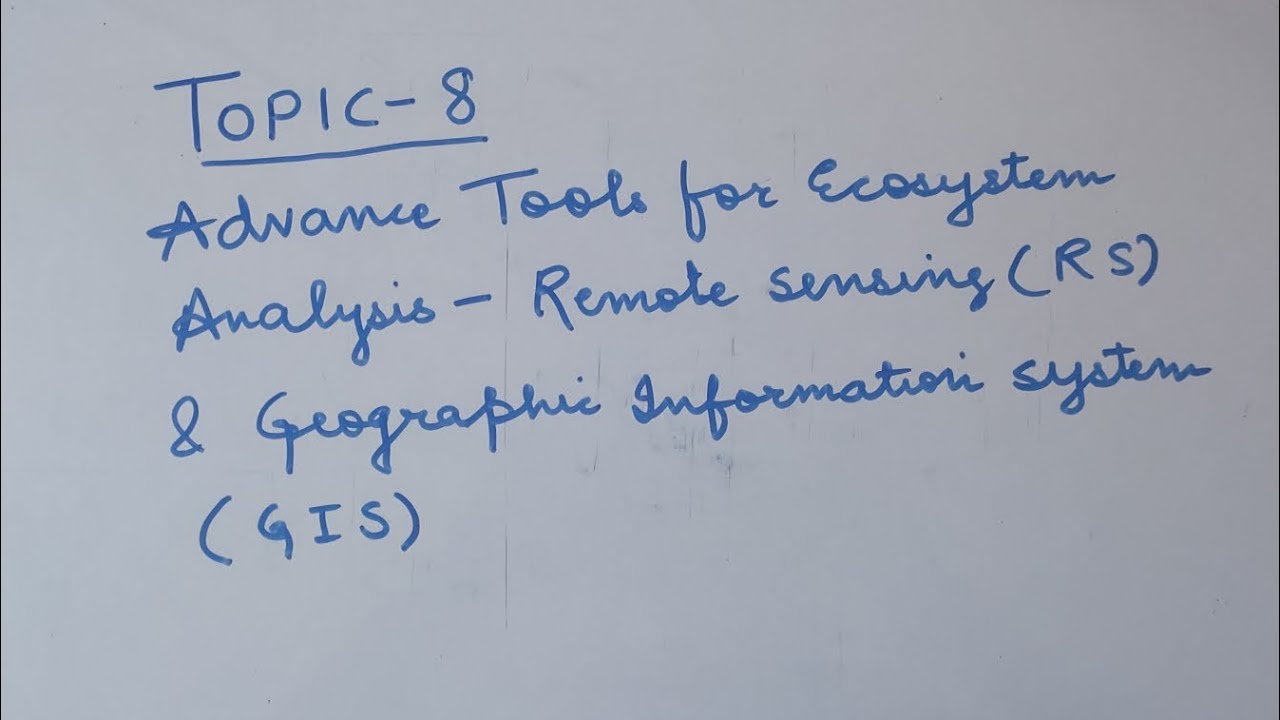 TOPIC-8
Advance Tools for Ecosystem
Analysis - Remote sensing (RS)
& Geographic Information system
(GIS)